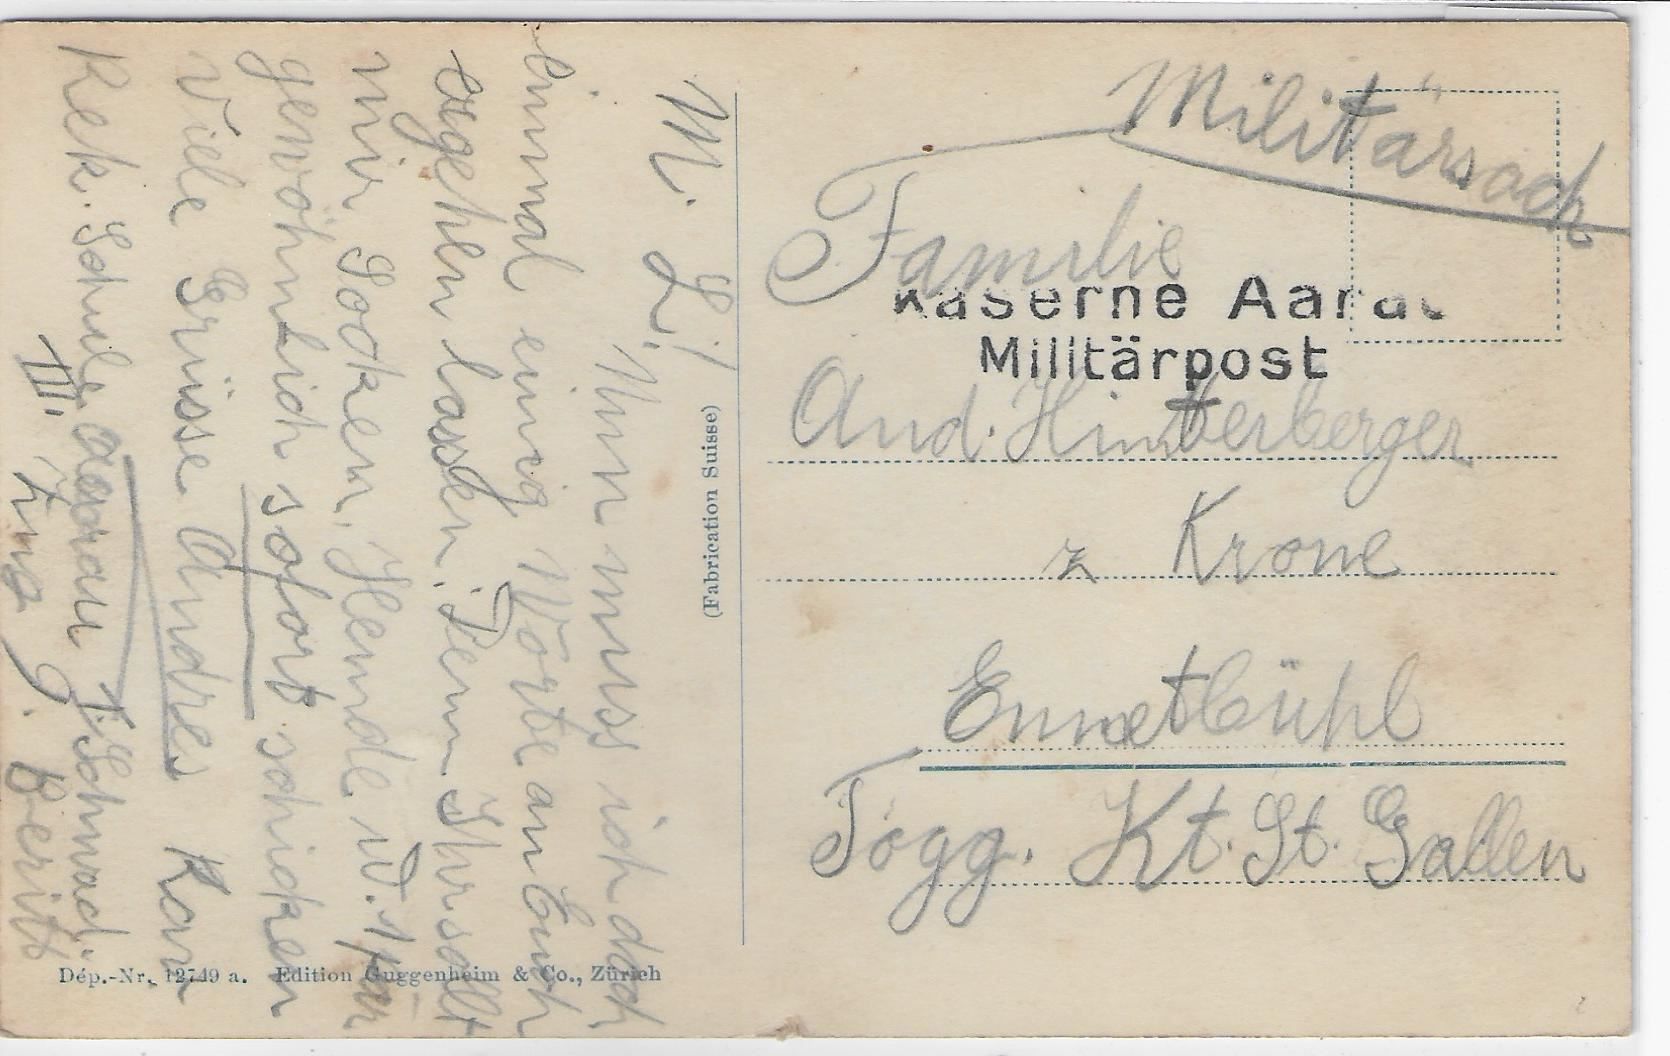 M. L!
Nun muss ich doch
einmal einig Wörte an Euch
ergehen lassen. Denn Ihr sollt
mir Socken, Hemde u. 1 Par
gewöhnlich sofort schicken
Viele Grüsse Andres Kan
Rek. Schule Aarau I. Schwad.
III. Zug J. Beritt
(Fabrication Suisse)
Dép.-Nr. 12749 a. Edition Guggenheim & Co., Zürich
Militärsach
Familie
Kaserne Aarau
Militärpost
And. Hinterberger
z Krone
Ennetbühl
Togg. Kt. St. Gallen